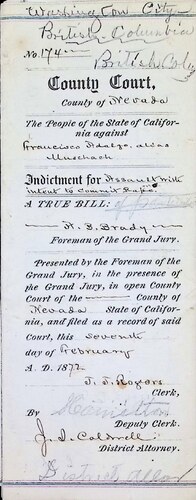 Washington City
British Columbia
No. 174
British Col
County Court,
County of Nevada
The People of the State of Califor-
nia against
Francisco Hidalgo, alias
Muschach
Indictment for Assault with
intent to commit Rape.
A TRUE BILL:
N. B. Brady
Foreman of the Grand Jury.
Presented by the Foreman of the
Grand Jury, in the presence of
the Grand Jury, in open County
Court of the County of
Nevada State of Califor-
nia, and filed as a record of said
Court, this seventh
day of February
A. D. 1872
T. T. Rogers
Clerk,
By Hamilton
Deputy Clerk.
J. I. Caldwell
District Attorney.
District